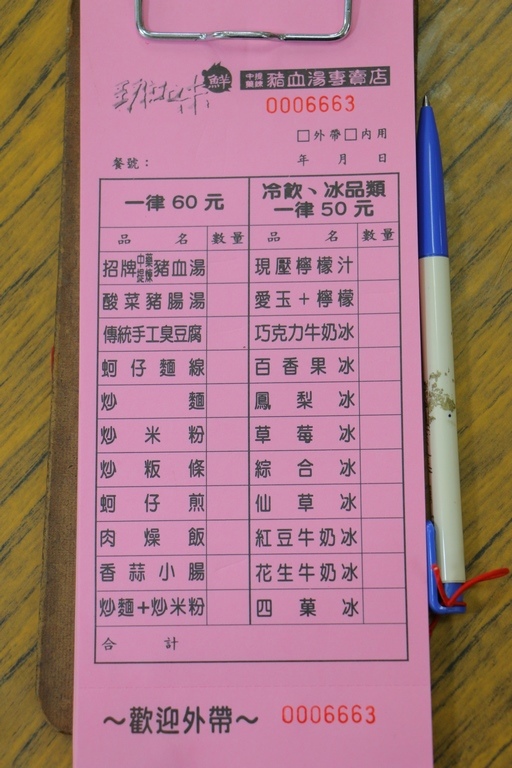 鮮 中提藥煉 豬血湯專賣店
0006663
□外帶□內用
餐號： 年 月 日
一律 60 元 冷飲、冰品類 一律 50 元
品 名 數量 品 名 數量
招牌中藥提煉豬血湯 現壓檸檬汁
酸菜豬腸湯 愛玉+檸檬
傳統手工臭豆腐 巧克力牛奶冰
蚵仔麵線 百香果冰
炒麵 鳳梨冰
炒米粉 草莓冰
炒粄條 綜合冰
蚵仔煎 仙草冰
肉燥飯 紅豆牛奶冰
香蒜小腸 花生牛奶冰
炒麵+炒米粉 四菓冰
合 計
～歡迎外帶～ 0006663